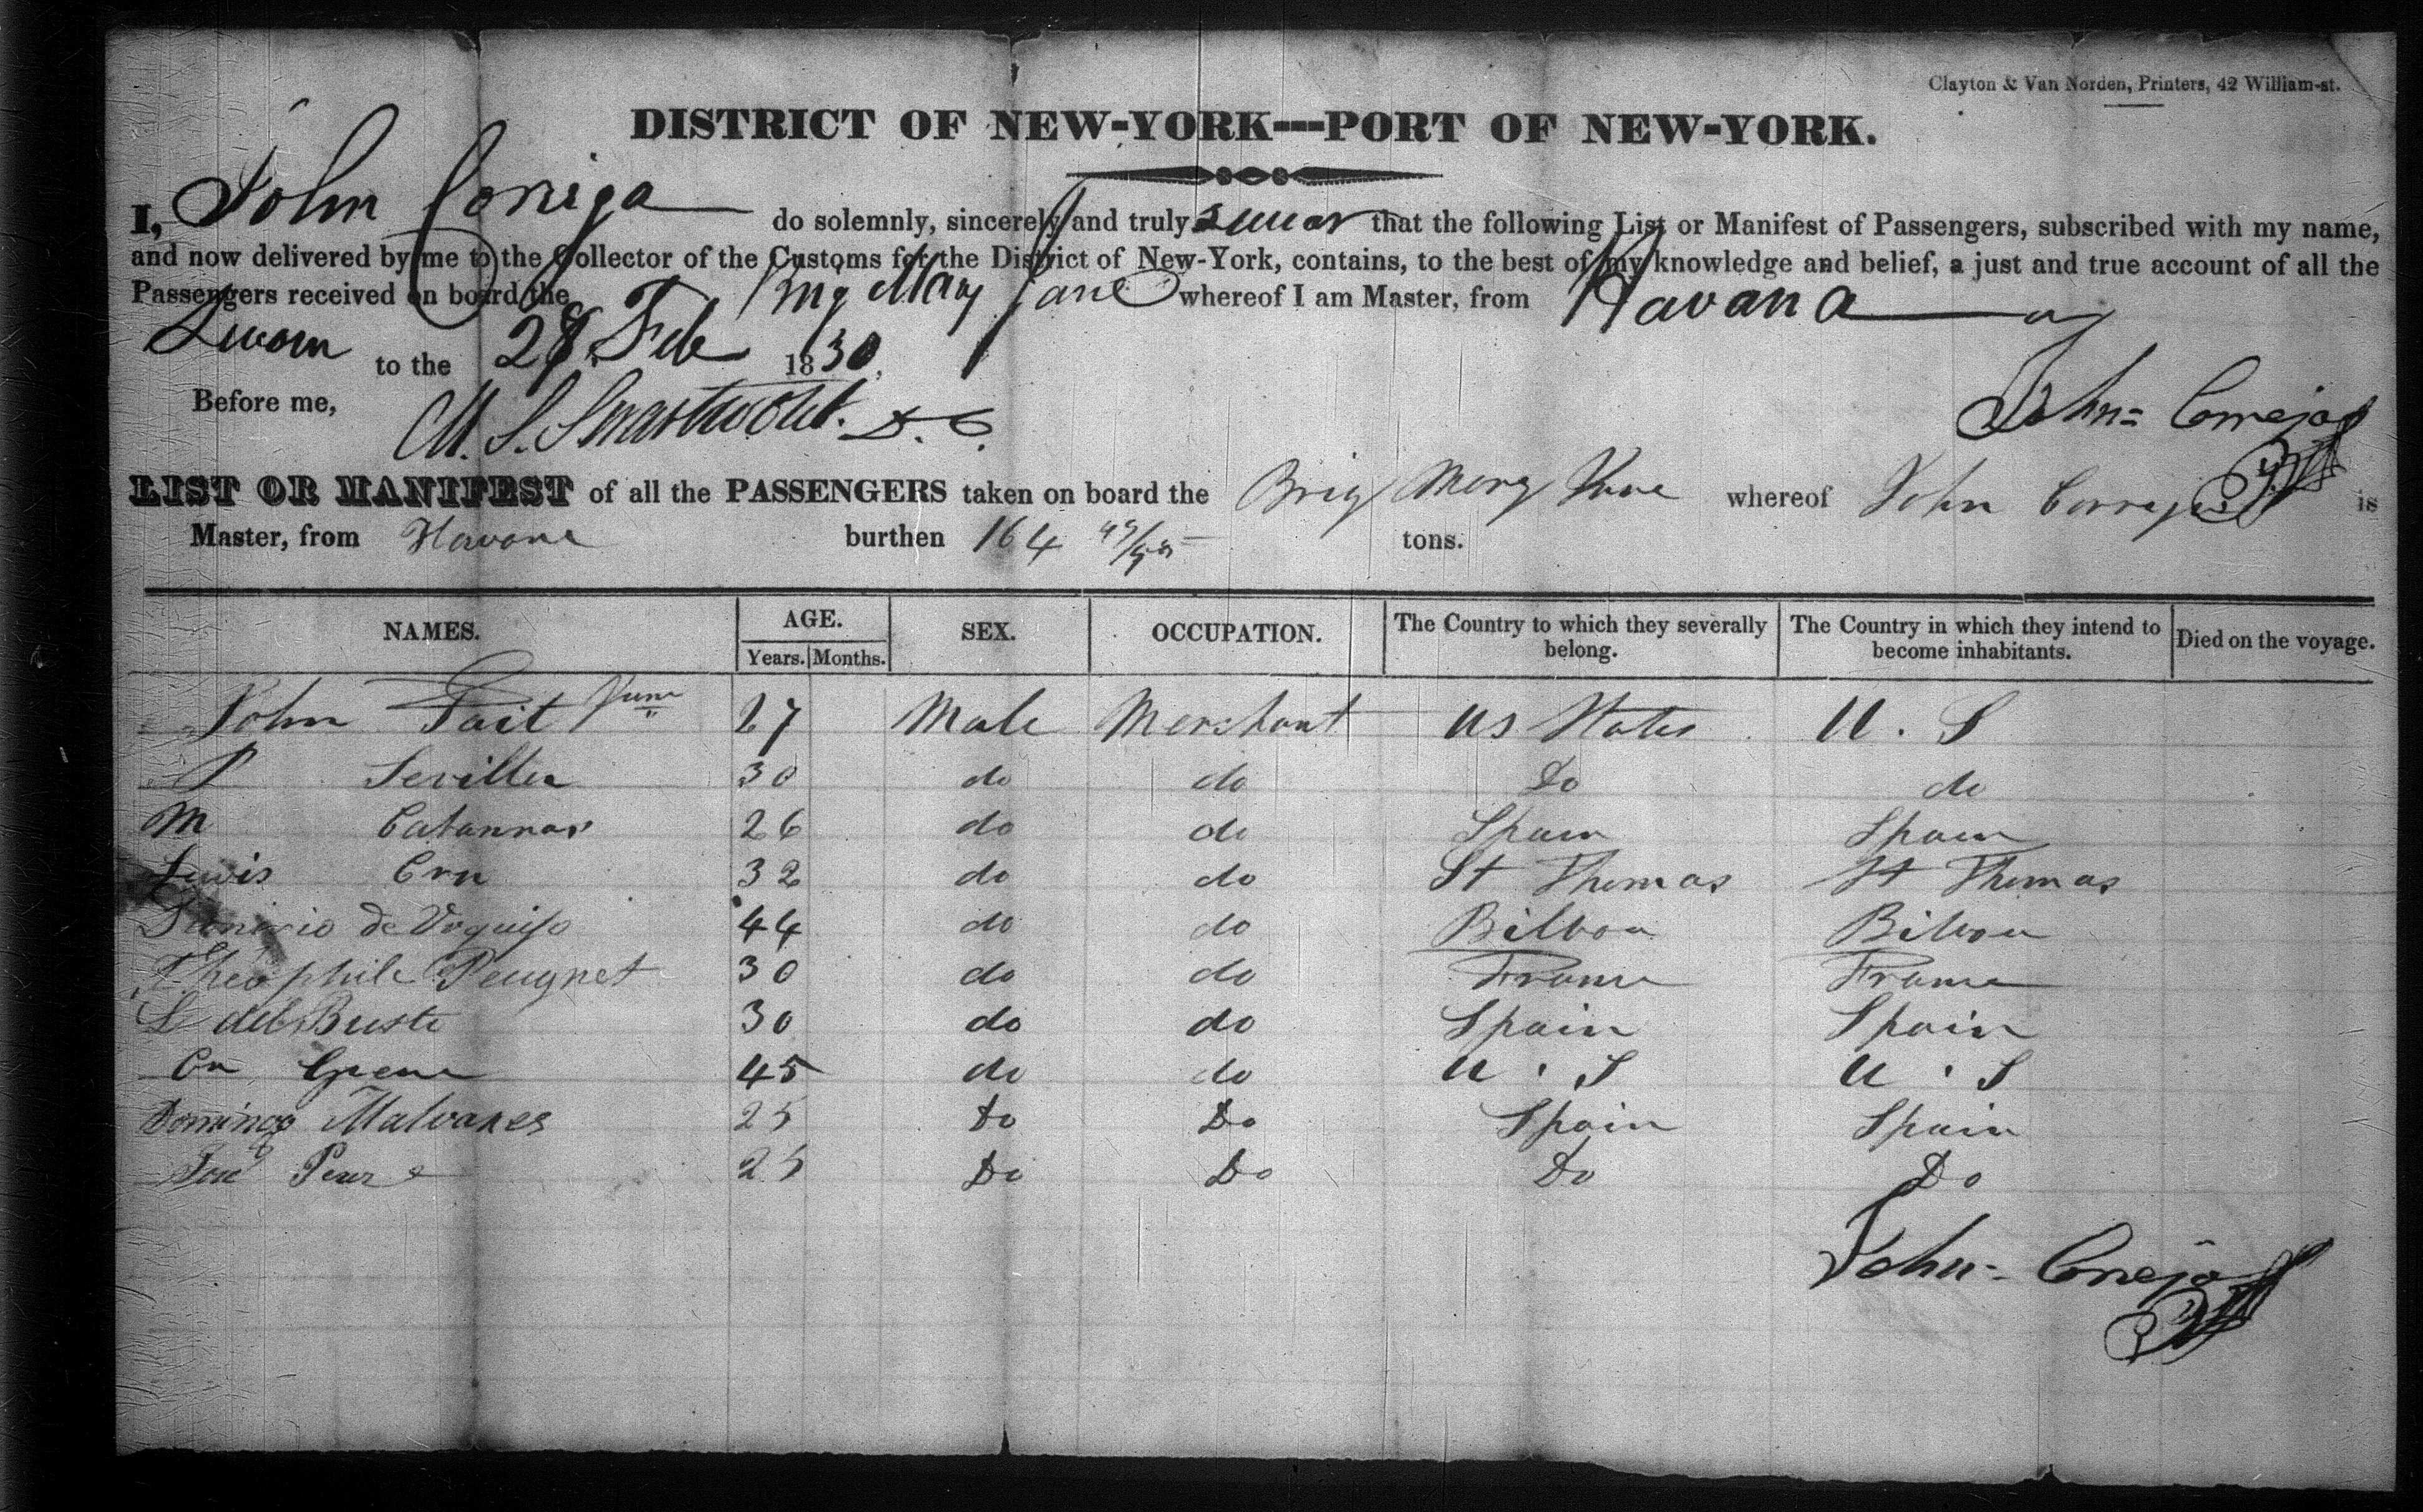 Clayton & Van Norden, Printers, 42 William-st.
DISTRICT OF NEW-YORK---PORT OF NEW-YORK.
I, John Coniga do solemnly, sincerely and truly swear that the following List or Manifest of Passengers, subscribed with my name,
and now delivered by me to the Collector of the Customs for the District of New-York, contains, to the best of my knowledge and belief, a just and true account of all the
Passengers received on board the Brig Mary Jane whereof I am Master, from Havana
Sworn to the 28 Feb 1830,
Before me, M. S. Swartwout. D. C.
John= Correja
LIST OR MANIFEST of all the PASSENGERS taken on board the Brig Mary Jane whereof John is
Master, from Havana burthen 164 tons.
NAMES. AGE. SEX. OCCUPATION. The Country to which they severally belong. The Country in which they intend to become inhabitants. Died on the voyage.
Years. Months.
John Tait Junr 27 Male Merchant US States U. S
P Sevilla 30 do do Do do
M 26 do do Spain Spain
Lewis 32 do do St Thomas St Thomas
de Urquiso 44 do do Bilboa Bilboa
Theophile Peugnet 30 do do France France
L del Busto 30 do do Spain Spain
Green 45 do do U. S U. S
Domingo Malvares 25 Do Do Spain Spain
25 Do Do Do Do
John= Correja